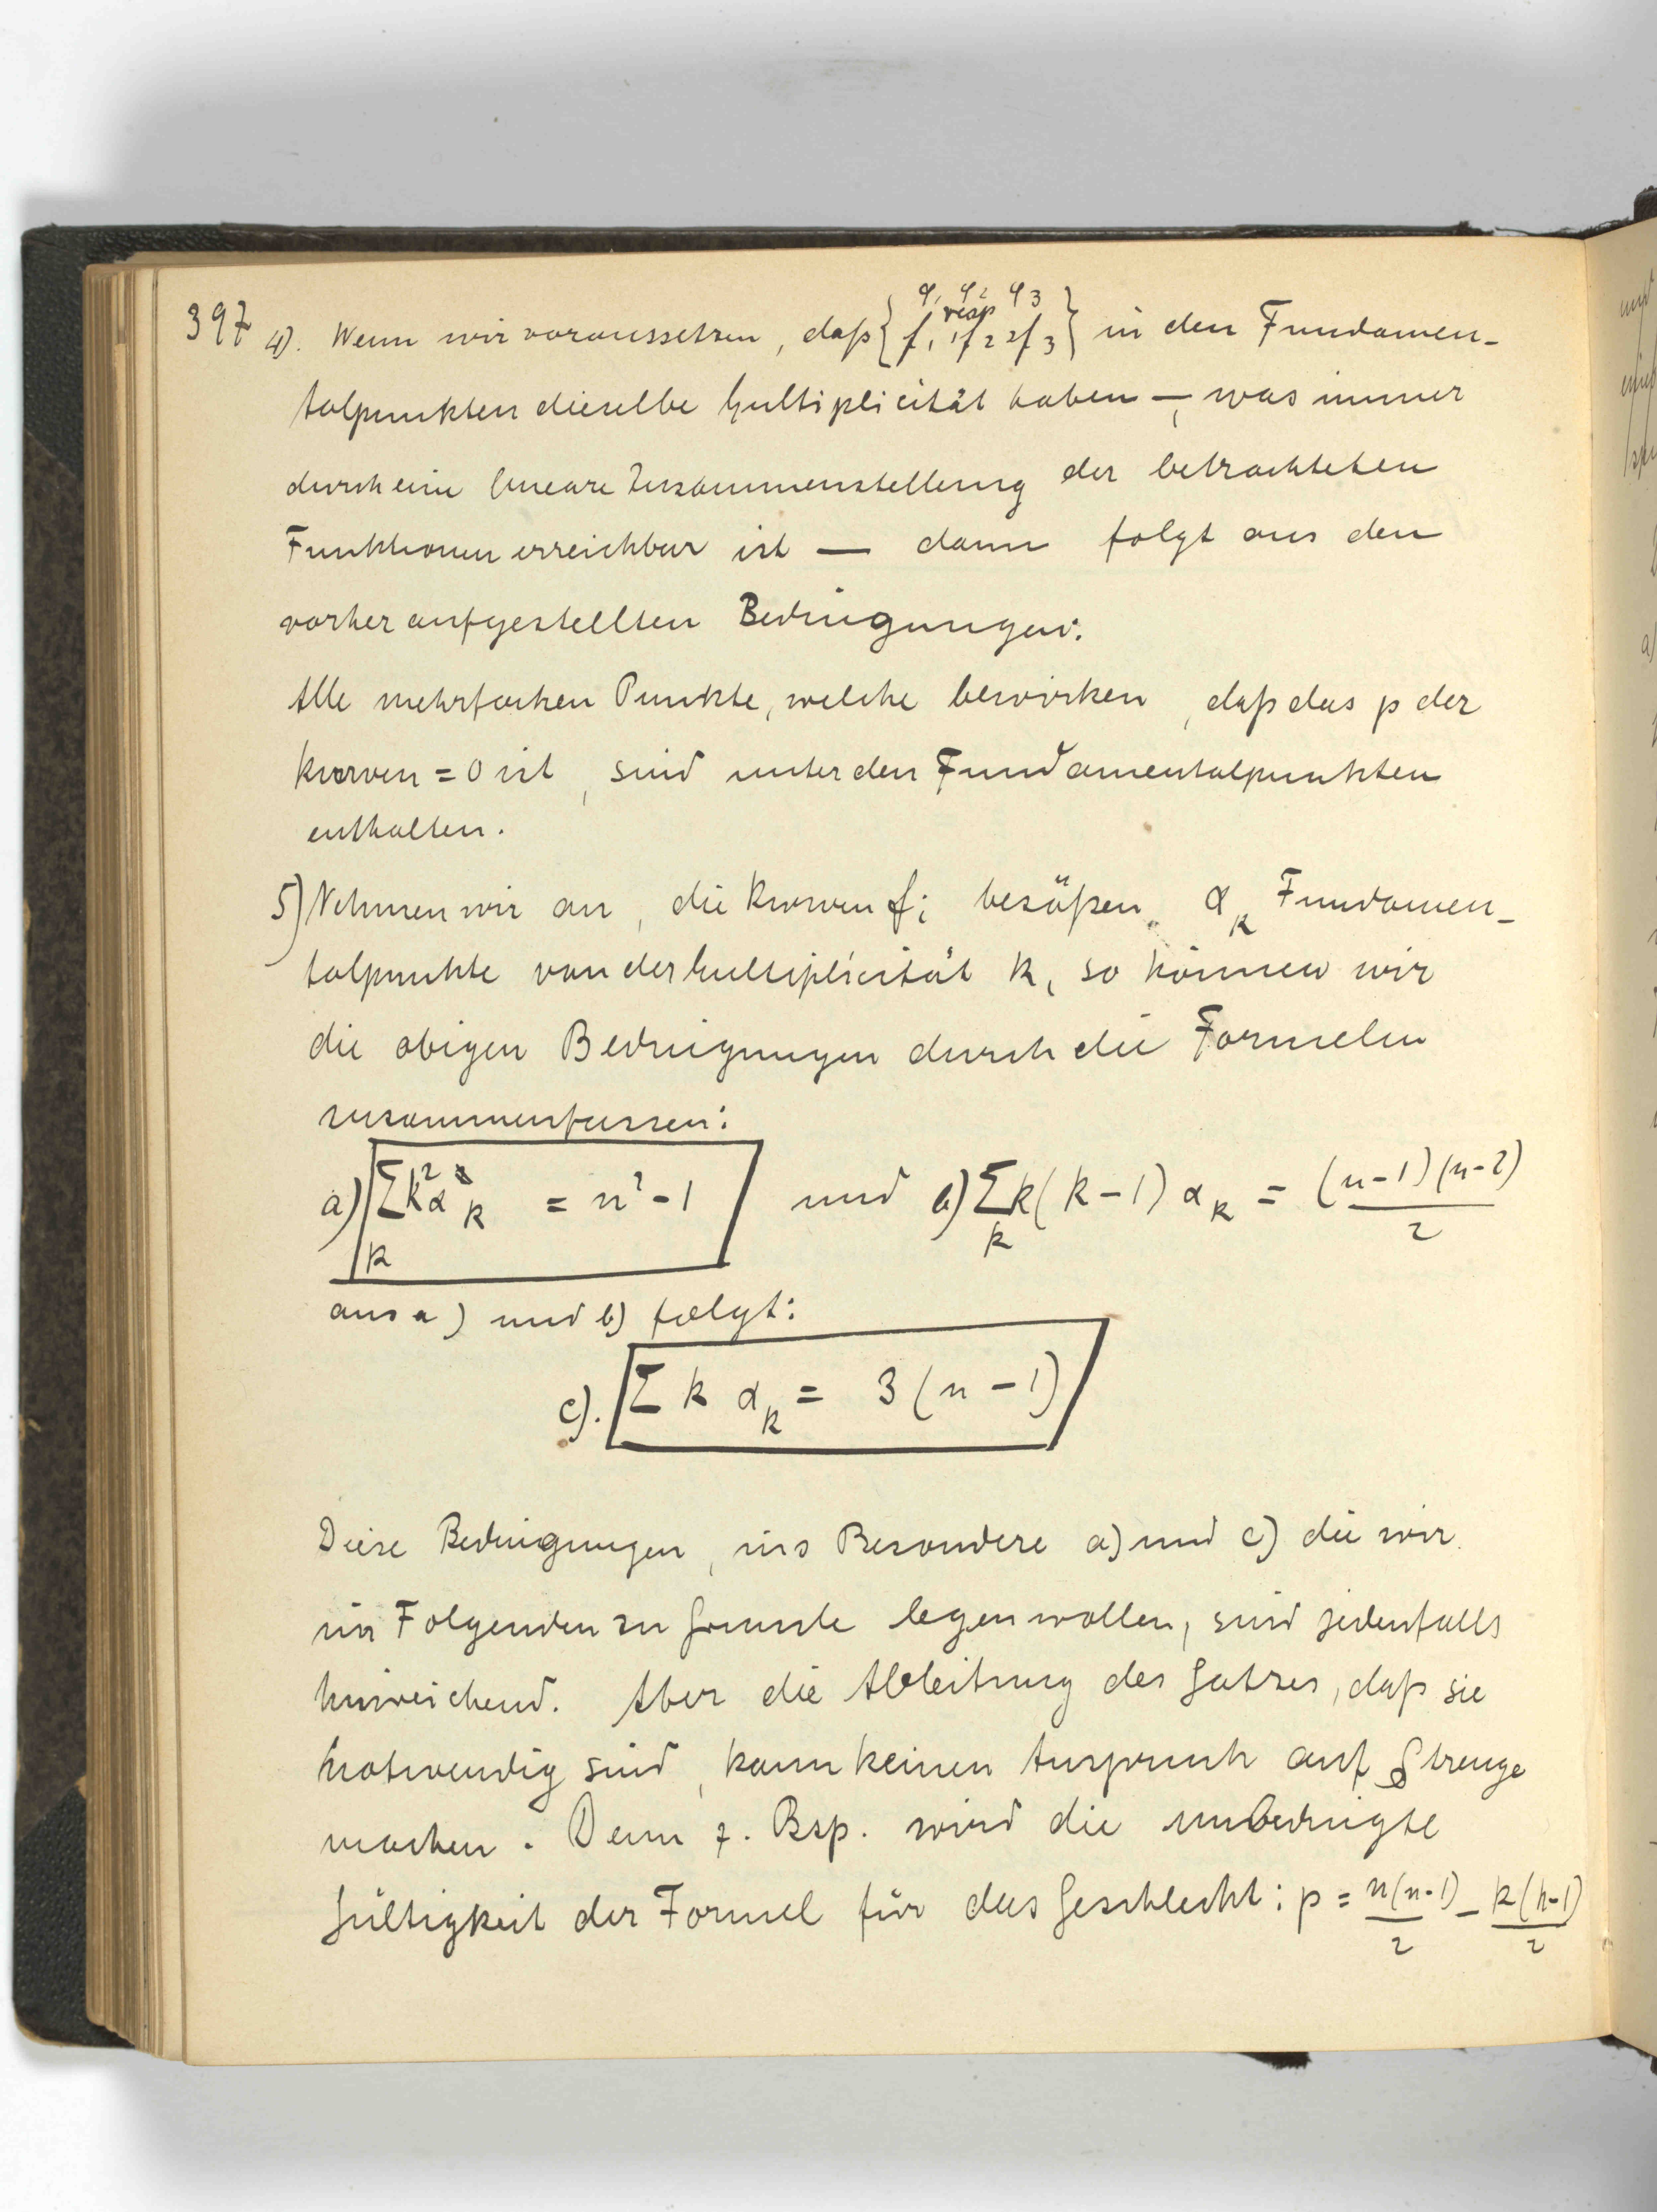 397 4). Wenn wir voraussetzen, daß { φ1 φ2 φ3 resp f1, f2, f3 } in den Fundamen-
talpunkten dieselbe Multiplicität haben –, was immer
durch eine lineare Zusammenstellung der betrachteten
Funktionen erreichbar ist — dann folgt aus den
vorher aufgestellten Bedingungen:
Alle mehrfachen Punkte, welche bewirken, daß das p der
Kurven = 0 ist, sind unter den Fundamentalpunkten
enthalten.
5) Nehmen wir an, die Kurven fi besäßen αk Fundamen-
talpunkte von der Multiplicität k, so können wir
die obigen Bedingungen durch die Formeln
zusammenfassen:
a) Σk k²αk = n²-1 und b) Σk k(k-1) αk = (n-1)(n-2)/2
aus a) und b) folgt:
c). Σ k αk = 3(n-1)
Diese Bedingungen, ins Besondere a) und c) die wir
im Folgenden zu Grunde legen wollen, sind jedenfalls
hinreichend. Aber die Ableitung des Satzes, daß sie
notwendig sind, kann keinen Anspruch auf Strenge
machen. Denn z. Bsp. wird die unbedingte
Gültigkeit der Formel für das Geschlecht: p = n(n-1)/2 - k(k-1)/2